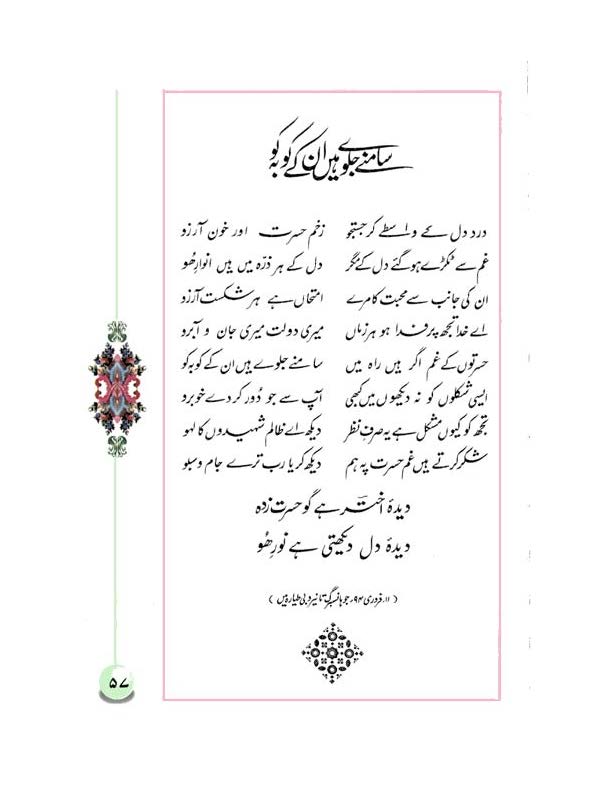 سامنے جلوے ہیں ان کے کو بہ کو
درد دل کے واسطے کر جستجو زخم حسرت اور خون آرزو
غم سے ٹکڑے ہو گئے دل کے مگر دل کے ہر ذرّہ میں ہیں انوارِ ھُو
ان کی جانب سے محبت کا مرے امتحاں ہے ہر شکست آرزو
اے خدا تجھ پر فدا ہو ہر زماں میری دولت میری جان و آبرو
حسرتوں کے غم اگر ہیں راہ میں سامنے جلوے ہیں ان کے کو بہ کو
ایسی شکلوں کو نہ دیکھوں میں کبھی آپ سے جو دُور کر دے خوبرو
تجھ کو کیوں مشکل ہے یہ صرفِ نظر دیکھ اے ظالم شہیدوں کا لہو
شکر کرتے ہیں غم حسرت پہ ہم دیکھ کر یا رب ترے جام و سبو
دیدۂ اختر ہے گو حسرت زدہ
دیدۂ دل دیکھتی ہے نورِ ھُو
(۱۱۔ فروری ۹۴ء جوہانسبرگ تا نیروبی طیارہ میں)
۵۷